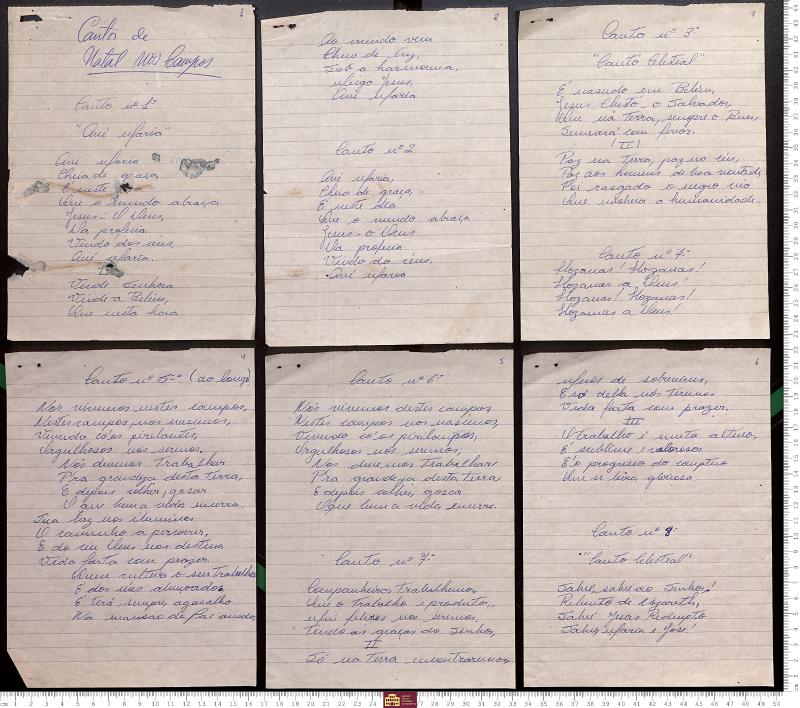 1
Cantos de
Natal nos Campos
Canto nº 1º
"Avé Maria"
Avé Maria
Cheia de graça,
E neste
Que o mundo abraça
Jesus - O Deus,
Da profecia
Vindo dos céus,
Avé Maria.
II
Vinde Senhora
Vinde a Belém,
Que nesta hora
2
Ao mundo vem
Cheio de luz,
Sob a harmonia,
Jesus,
Avé Maria
Canto nº 2
Avé Maria,
Cheia de graça,
E neste dia
Que o mundo abraça
Jesus - o Deus
Da profecia
Vindo do céus,
Avé Maria
3
Canto nº 3º
"Canto Celestial"
É nascido em Belém,
Jesus Christo - o Salvador,
Que na terra, sempre o Bem,
Semeará com fervor.
(II)
Paz na terra, paz no céu,
Paz aos homens de boa vontade,
Foi rasgado o negro véu
Que a humanidade.
Canto nº 4º
Hozanas! Hozanas!
Hozanas a Deus!
Hozanas! Hozanas!
Hozanas a Deus!
4
Canto nº 5º (ao longe)
Nós vivemos nestes campos,
Nestes campos, nós nascemos,
Vivendo có'os
Orgulhosos nós seremos,
Nós devemos trabalhar
P'ra grandeza desta terra,
E depois colher, gosar
O que bem a vida encerra.
Sua luz nos ilumine
O caminho a percorrer,
E do céu Deus nos destine
Vida farta com prazer.
Quem cultiva o seu trabalho
É dos céus abençoado
E terá sempre agasalho
Na mansão do Pai amado.
5
Canto nº 6º
Nós vivemos destes campos
Nestes campos nós nascemos,
Vivendo có'os pirilampos,
Orgulhosos nós seremos,
Nós devemos trabalhar
Pra grandeza desta terra
E depois colher, gosar
O que bem a vida encerra.
Canto nº 7º
Companheiros trabalhemos,
Que o trabalho é produtor,
felizes nós seremos,
Tendo as graças do Senhor,
II
Só na terra encontraremos
6
Meios de sobreviver,
E só dela nós teremos
Vida farta com prazer.
III
O trabalho é muito altivo,
É sublime e valoroso
É o progresso
Que se torna glorioso.
Canto nº 8º
"Canto Celestial"
Salvé, salvé ao Senhor!
de Nazareth,
Salvé Jesus Redemptor
Salvé Maria e José!